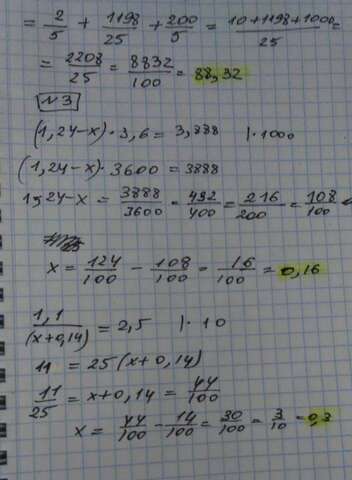 = 2/5 + 1198/25 + 200/5 = 10+1198+1000/25 =
= 2208/25 = 8832/100 = 88,32
N3
(1,24-x)·3,6 = 3,888 |·1000
(1,24-x)·3600 = 3888
1,24-x = 3888/3600 = 432/400 = 216/200 = 108/100
x = 124/100 - 108/100 = 16/100 = 0,16
1,1/(x+0,14) = 2,5 |·10
11 = 25(x+0,14)
11/25 = x+0,14 = 44/100
x = 44/100 - 14/100 = 30/100 = 3/10 = 0,3